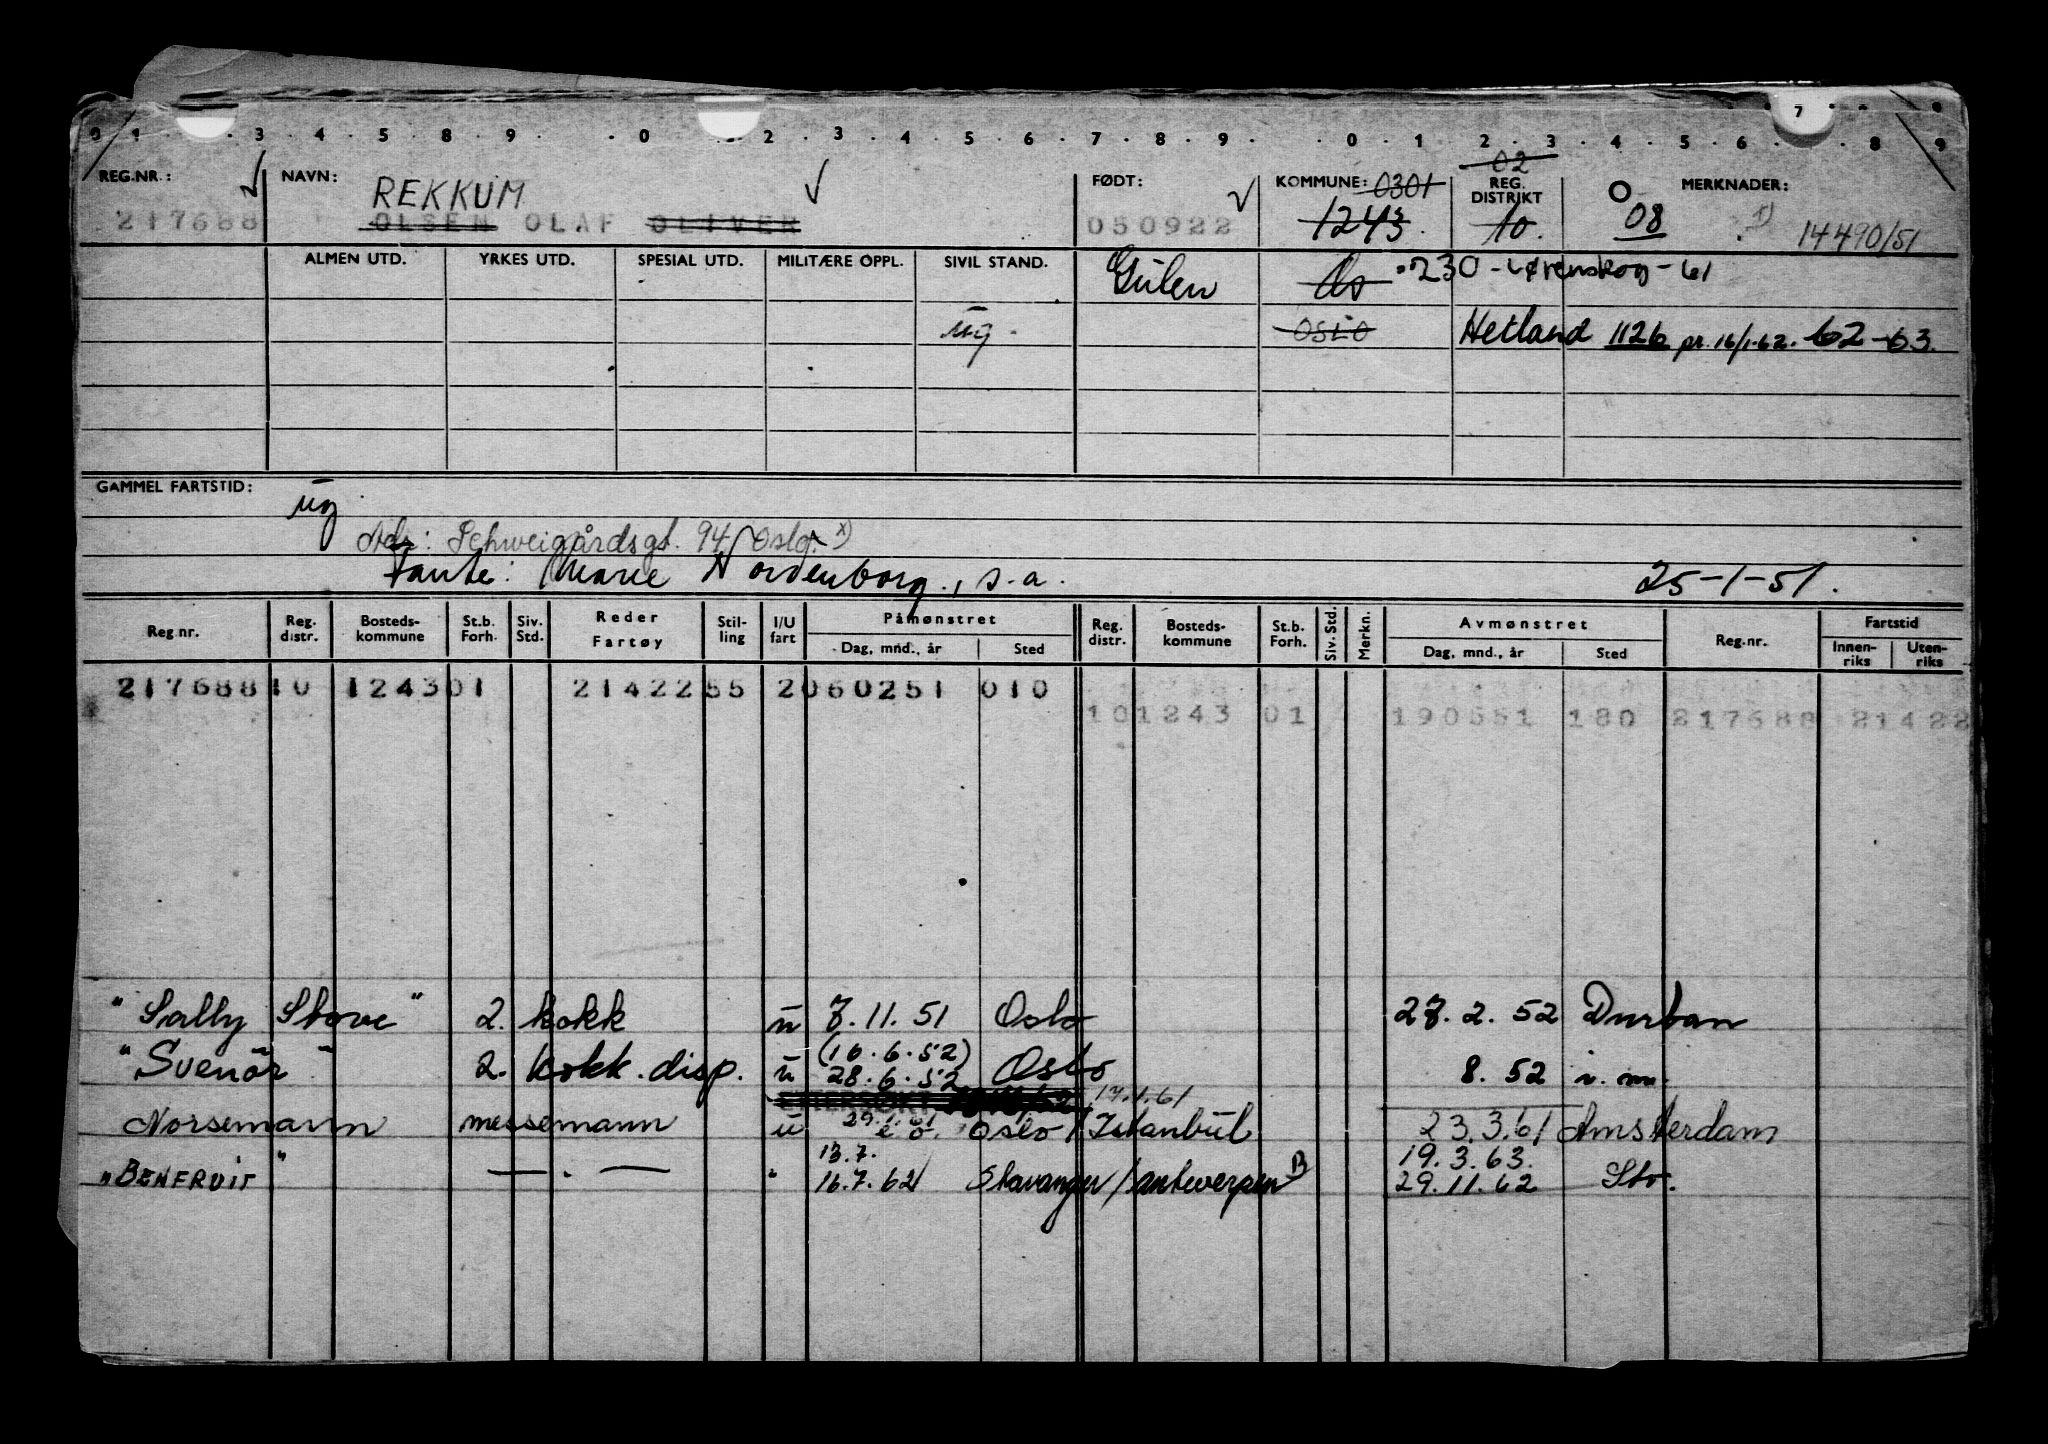 0 1 3 4 5 8 9 0 2 3 4 5 6 7 8 9 0 1 2 3 4 5 6 7 8 9
REG.NR.: NAVN: FØDT: KOMMUNE: 0301 02 REG. DISTRIKT MERKNADER:
REKKUM
217688 OLSEN OLAF OLIVER 050922 1243 10. 08 1) 14490/51
ALMEN UTD. YRKES UTD. SPESIAL UTD. MILITÆRE OPPL. SIVIL STAND. Gulen Os 0230 - Lørenskog - 61
ug. OSLO Hetland 1126 pr. 16/1-62. 62-63.
GAMMEL FARTSTID: ug
Adr: Schweigårdsgt. 94, Oslo. x)
Tante: Marie Nordenborg, s.a. 25-1-51.
Reg.nr. Reg. distr. Bosteds-kommune St.b. Forh. Siv. Std. Reder Fartøy Stil-ling I/U fart Påmønstret Dag, mnd., år Sted Reg. distr. Bosteds-kommune St.b. Forh. Siv. Std. Merkn. Avmønstret Dag, mnd., år Sted Reg.nr. Fartstid Innen-riks Uten-riks
217688 10 1243 01 21422 55 2 060251 010
10 1243 01 190551 180 217688 21422
"Sally Stove" 2. kokk u 7.11.51 Oslo 27.2.52 Durban
"Svenör" 2. kokk.disp. u (16.6.52) 28.6.52 Oslo 8.52 i.m.
17.1.61
Norsemann messemann u 29.1.61 e.o. Oslo / Istanbul 23.3.61 Amsterdam
13.7. 19.3.63.
"BENEFRUIT" — . — " 16.7.62 Stavanger / antwerpen B 29.11.62 Stv.